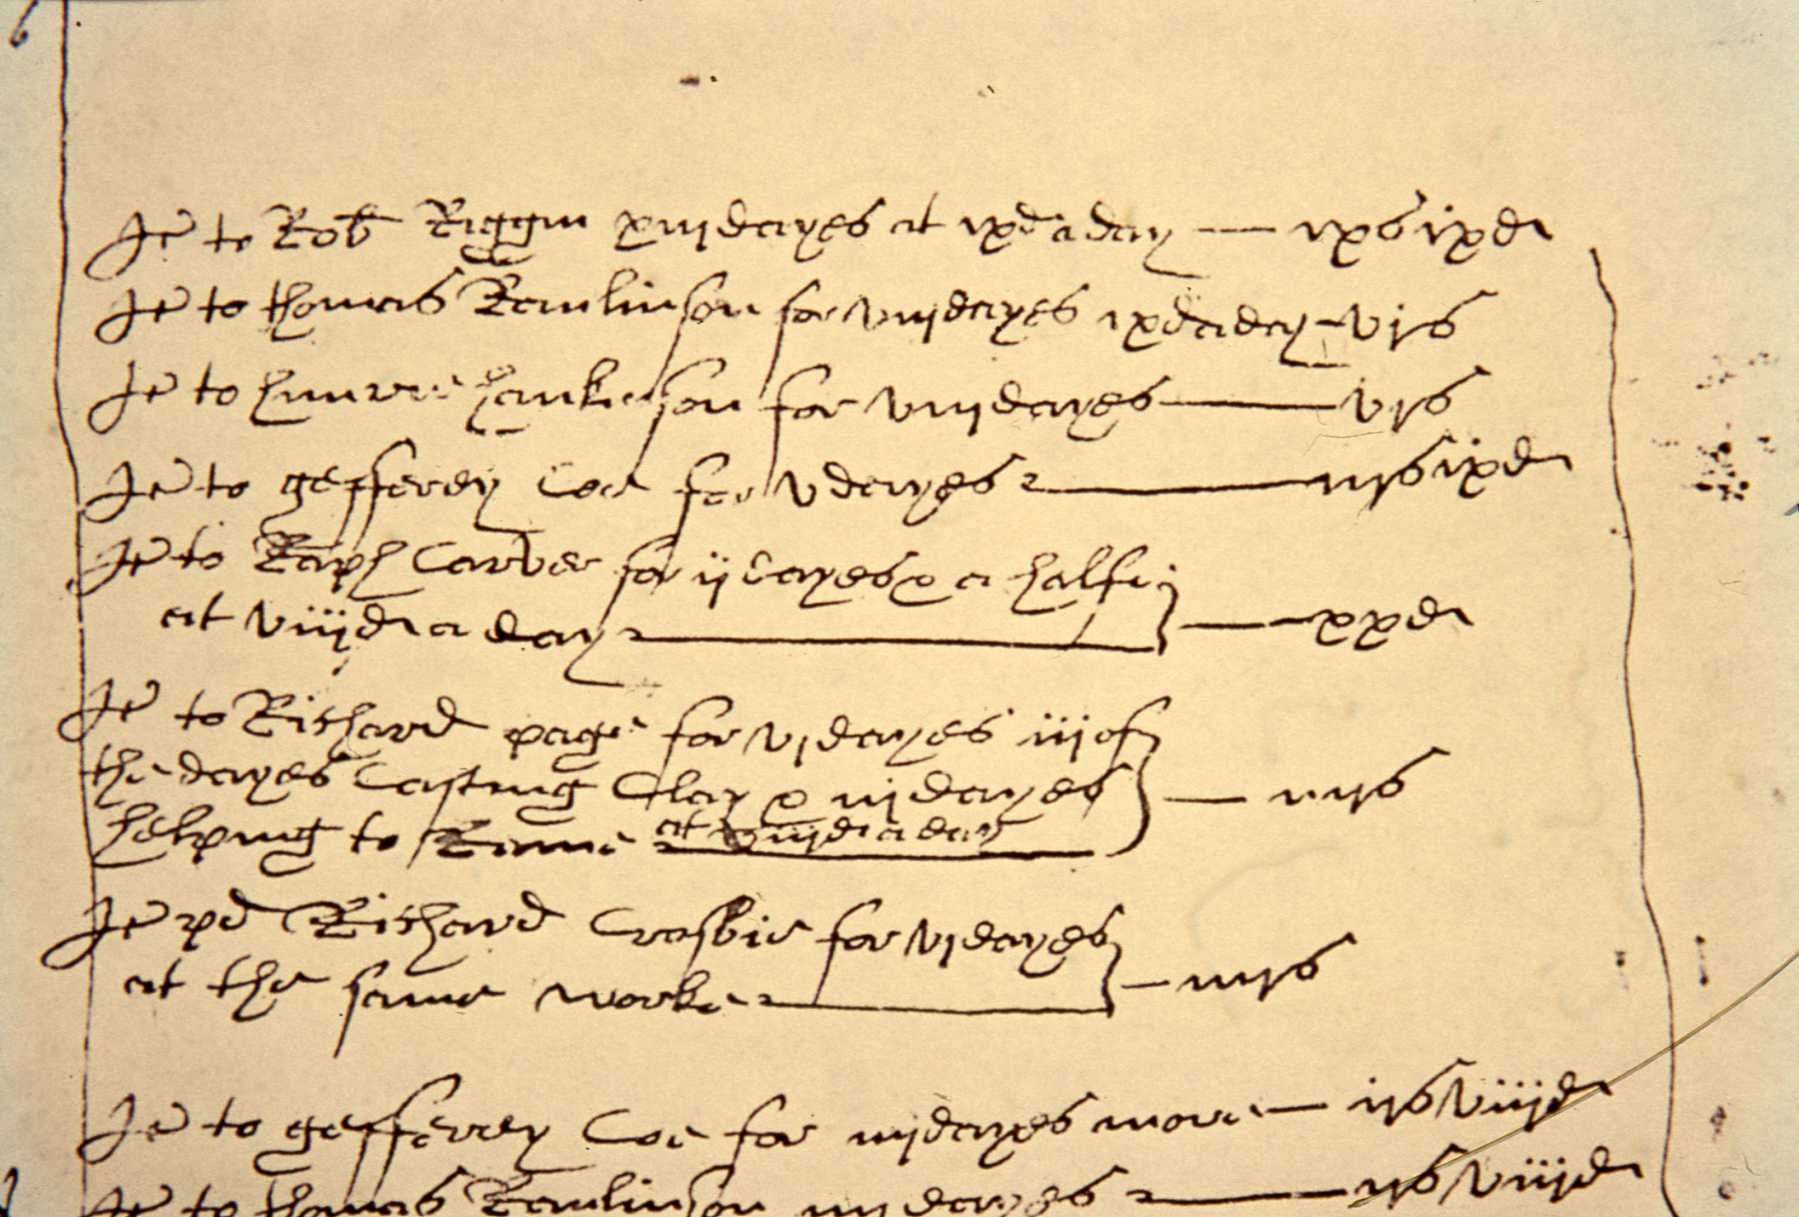 Ite to Rob Riggin xiijdayes at ixd a day — ixs ixd
Ite to thomas Rawlinson for viijdayes ixd a day – vjs
Ite to hawkinson for viijdayes — vjs
Ite to gefferey Coe for vdayes — iijs ixd
Ite to Raph Carver for ijdayes & a halfe
at viijd a day — xxd
Ite to Richard page for vjdayes iij of
the dayes Casting Clay & iijdayes
helping to Rame at viijd a day — iiijs
Ite pd Richard Crosbie for vjdayes
at the same worke — iiijs
Ite to gefferrey Coe for iiijdayes more — ijs viijd
Ite to thomas Rawlinson iiijdayes — ijs viijd